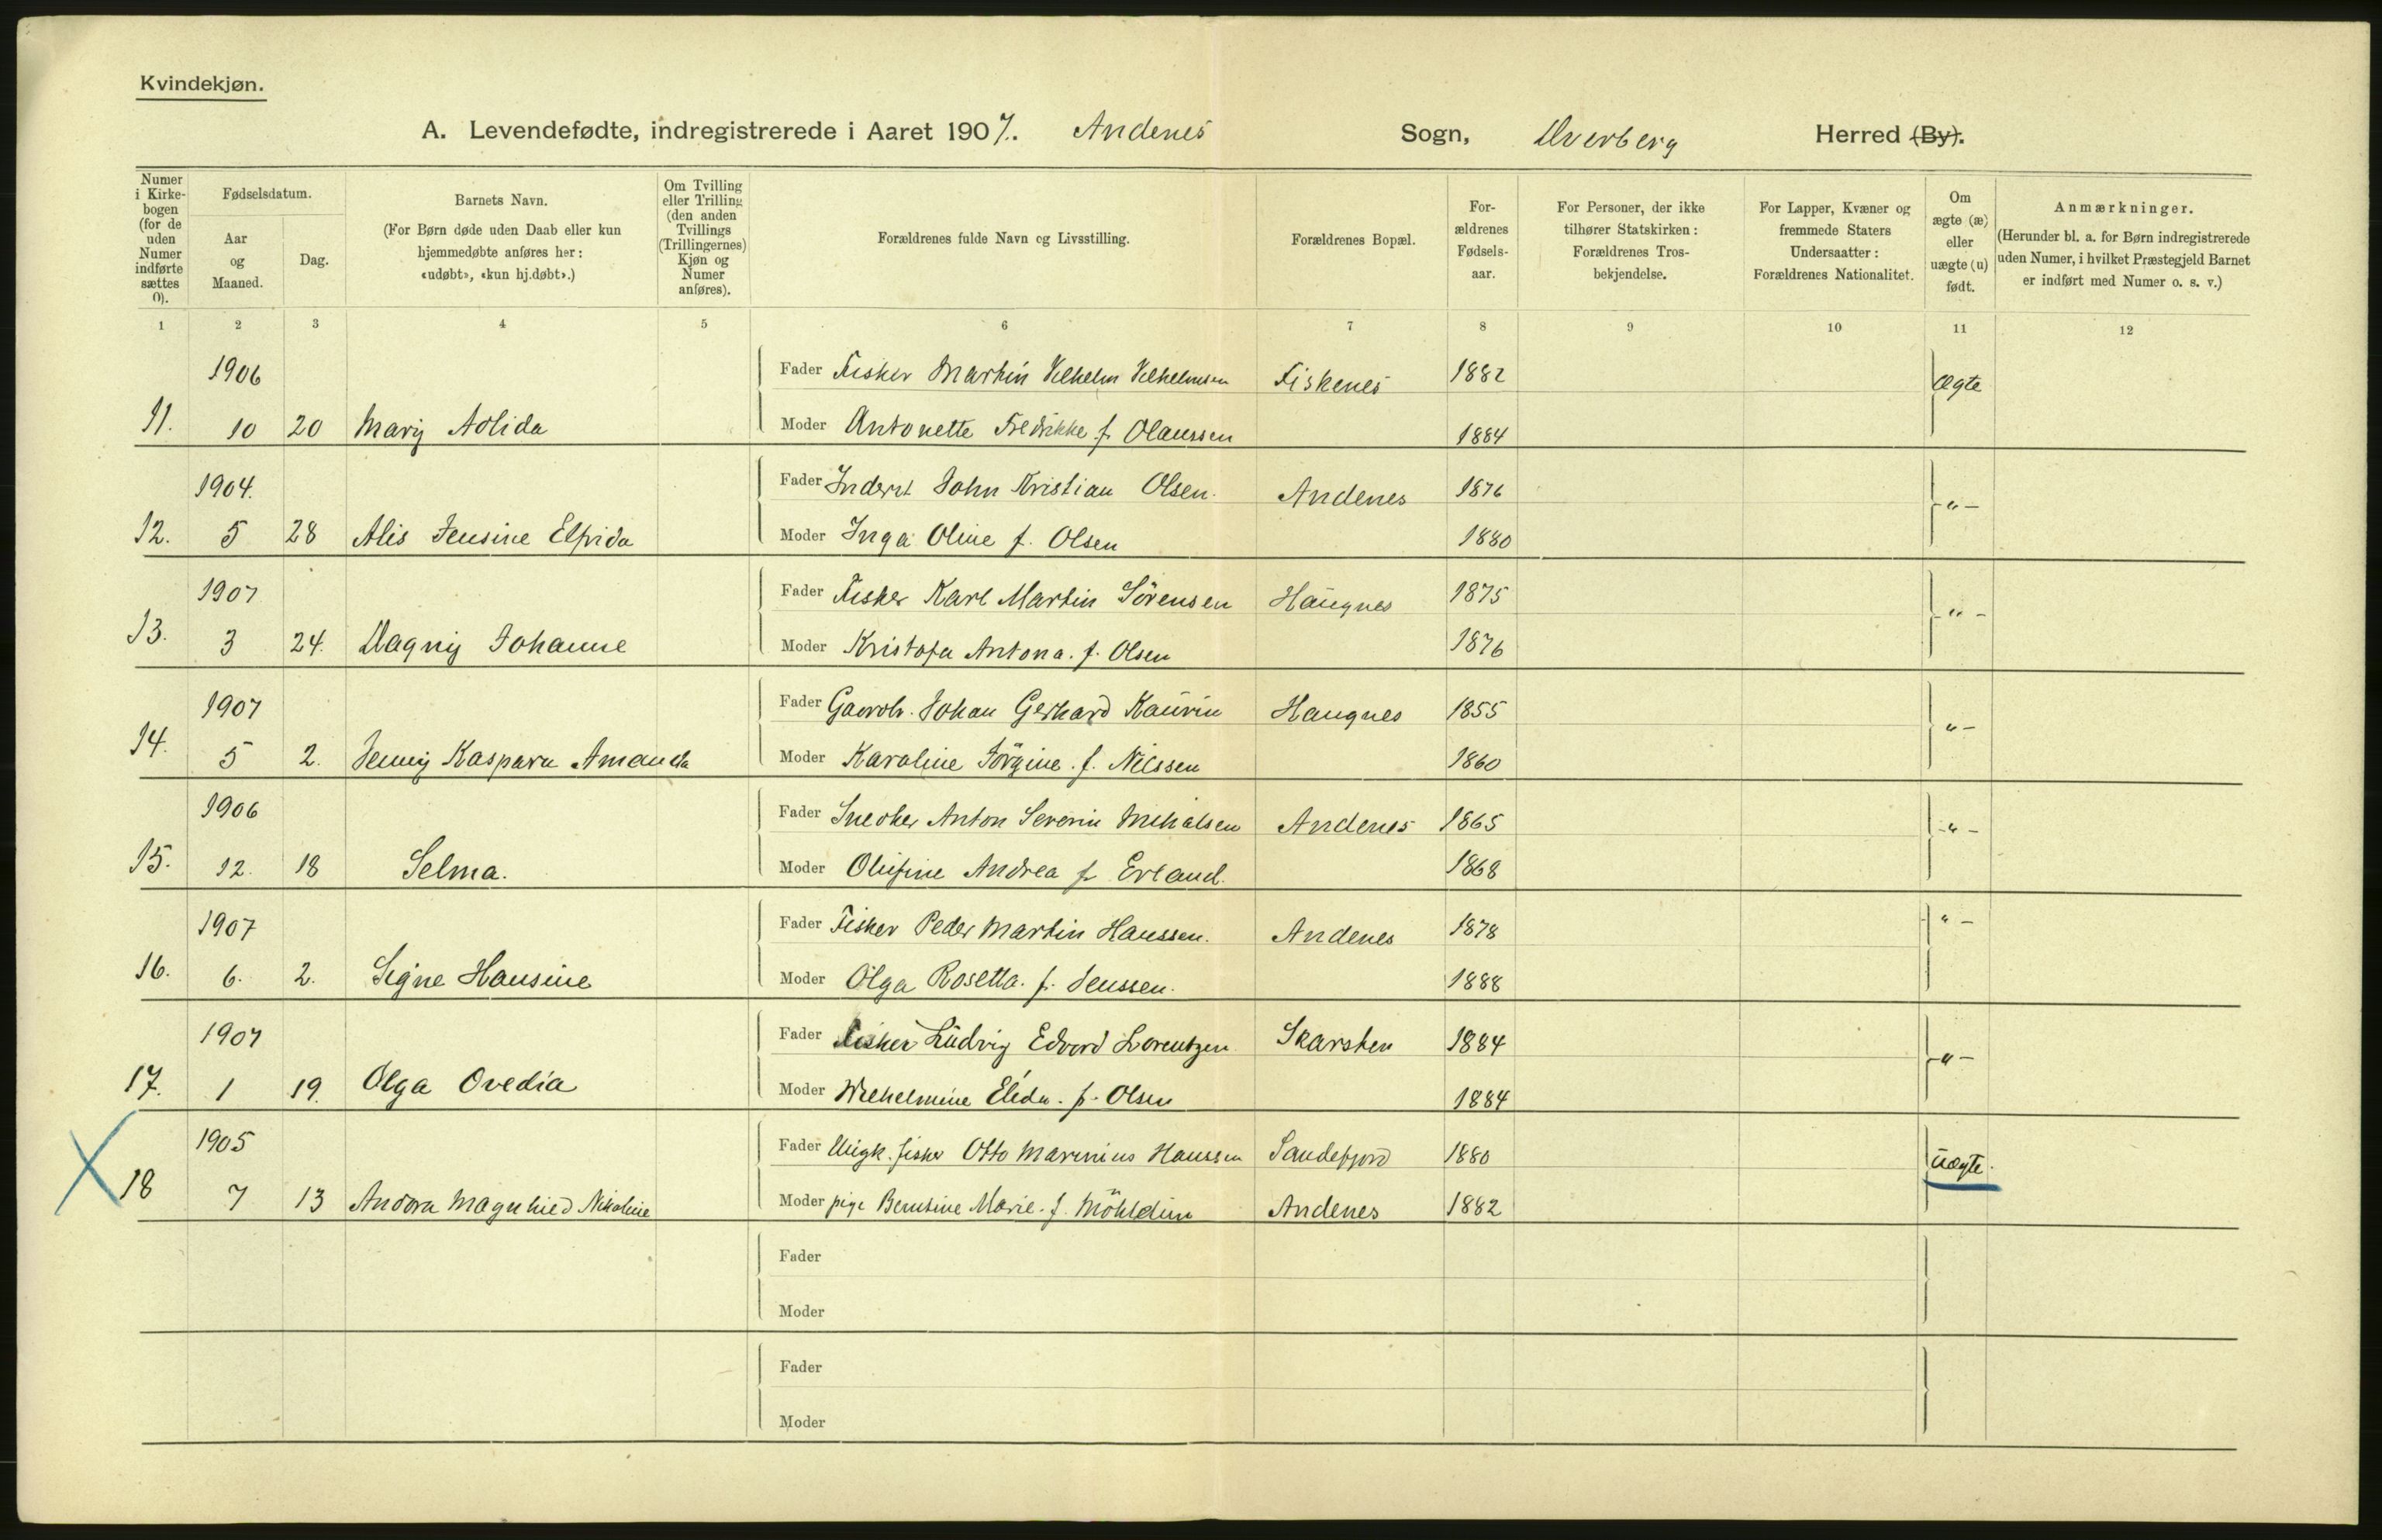 Kvindekjøn.
A. Levendefødte, indregistrerede i Aaret 1907. Andenes Sogn, Dverberg Herred (By).
Numer i Kirkebogen (for de uden Numer indførte sættes 0).
Fødselsdatum.
Aar og Maaned.
Dag.
Barnets Navn.
(For Børn døde uden Daab eller kun hjemmedøbte anføres her: «udøbt», «kun hj.døbt».)
Om Tvilling eller Trilling (den anden Tvillings (Trillingernes) Kjøn og Numer anføres).
Forældrenes fulde Navn og Livsstilling.
Forældrenes Bopæl.
Forældrenes Fødselsaar.
For Personer, der ikke tilhører Statskirken: Forældrenes Trosbekjendelse.
For Lapper, Kvæner og fremmede Staters Undersaatter: Forældrenes Nationalitet.
Om ægte (æ) eller uægte (u) født.
Anmærkninger.
(Herunder bl. a. for Børn indregistrerede uden Numer, i hvilket Præstegjeld Barnet er indført med Numer o. s. v.)
1 2 3 4 5 6 7 8 9 10 11 12
1906 Fader Fisker Martin Vilhelm Vilhelmsen Fiskenes 1882 Ægte
11. 10 20 Mary Adlida Moder Antonette Fredrikke f. Olaussen 1884
1904. Fader Inderst John Kristian Olsen. Andenes 1876 -"-
12. 5 28 Alis Jensine Elfrida Moder Inga Oline f. Olsen 1880
1907 Fader Fisker Karl Martin Sörensen Haugnes 1875 -"-
13. 3 24. Dagny Johanne Moder Kristofa Antona. f. Olsen 1876
1907 Fader Gaardbr. Johan Gerhard Kaurin Haugnes 1855 "-
14. 5 2. Jenny Kaspara Amanda Moder Karoline Jörgine. f. Nilssen 1860
1906 Fader Snedker Anton Severin Mikalsen Andenes 1865 -"-
15. 12. 18 Selma. Moder Olufine Andrea f. Erland. 1868
1907 Fader Fisker Peder Martin Hanssen. Andenes 1878 "-
16. 6. 2. Signe Hansine Moder Olga Rosetta. f. Jenssen. 1888
1907 Fader Fisker Ludvig Edvard Lorentzen Skarsten 1884 -"-
17. 1 19. Olga Ovedia Moder Wilhelmine Elida. f. Olsen 1884
1905 Fader Ungk. fisker Otto Marinius Hanssen Sandefjord 1880 uægte.
18 7 13 Andora Magnhild Nikoline Moder pige Berntine Marie. f. Andenes 1882
Fader
Moder
Fader
Moder